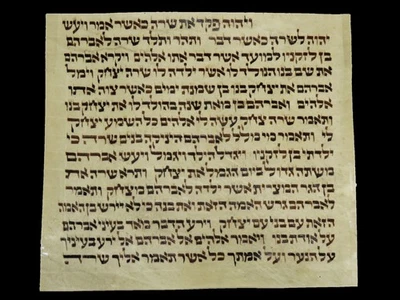 ויהוה פקד את שרה כאשר אמר ויעש
יהוה לשרה כאשר דבר ותהר ותלד שרה לאברהם
בן לזקניו למועד אשר דבר אתו אלהים ויקרא אברהם
את שם בנו הנולד לו אשר ילדה לו שרה יצחק וימל
אברהם את יצחק בנו בן שמנת ימים כאשר צוה אתו
אלהים ואברהם בן מאת שנה בהולד לו את יצחק בנו
ותאמר שרה צחק עשה לי אלהים כל השמע יצחק
לי ותאמר מי מלל לאברהם היניקה בנים שרה כי
ילדתי בן לזקניו ויגדל הילד ויגמל ויעש אברהם
משתה גדול ביום הגמל את יצחק ותרא שרה את
בן הגר המצרית אשר ילדה לאברהם מצחק ותאמר
לאברהם גרש האמה הזאת ואת בנה כי לא יירש בן האמה
הזאת עם בני עם יצחק וירע הדבר מאד בעיני אברהם
על אודת בנו ויאמר אלהים אל אברהם אל ירע בעיניך
על הנער ועל אמתך כל אשר תאמר אליך שרה